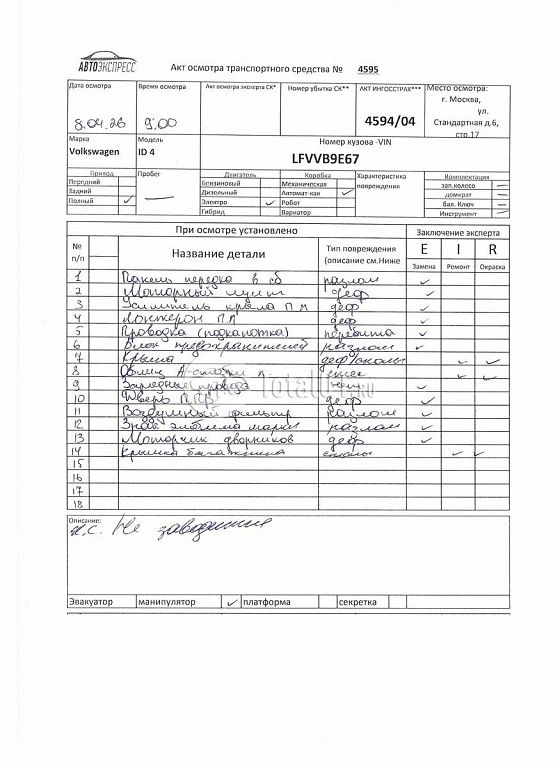 АВТОЭКСПРЕСС
Акт осмотра транспортного средства № 4595
Дата осмотра
8.04.26
Время осмотра
9.00
Акт осмотра эксперта СК*
Номер убытка СК**
АКТ ИНГОССТРАХ***
4594/04
Место осмотра:
г. Москва,
ул.
Стандартная д.6,
стр.17
Марка
Volkswagen
Модель
ID 4
Номер кузова -VIN
LFVVB9E67
Привод
Передний
Задний
Полный ✓
Пробег
—
Двигатель
Бензиновый
Дизельный
Электро ✓
Гибрид
Коробка
Механическая
Автомат кая ✓
Робот
Вариатор
Характеристика
повреждения
Комплектация
зап.колесо —
домкрат —
бал. Ключ —
Инструмент ✓
При осмотре установлено
Заключение эксперта
№
п/п
Название детали
Тип повреждения
(описание см.Ниже
E I R
Замена Ремонт Окраска
1 Панель передка в сб разлом ✓
2 Моторный щит деф ✓
3 Усилитель крыла П л деф ✓
4 Лонжерон П Л деф ✓
5 Проводка (подкапотка) перебита ✓
6 Блок предохранителей разлом ✓
7 Крыша деф/сколы ✓ ✓
8 Облиц А-стойки л ✓ ✓
9 Зарядные провода нет ✓
10 Дверь деф ✓
11 Воздушный фильтр разлом ✓
12 Знак эмблема марки разлом ✓
13 Моторчик дворников деф ✓
14 Крышка багажника сколы ✓ ✓
15
16
17
18
Описание:
Не заводится
Эвакуатор манипулятор ✓ платформа секретка
TotalL.RU